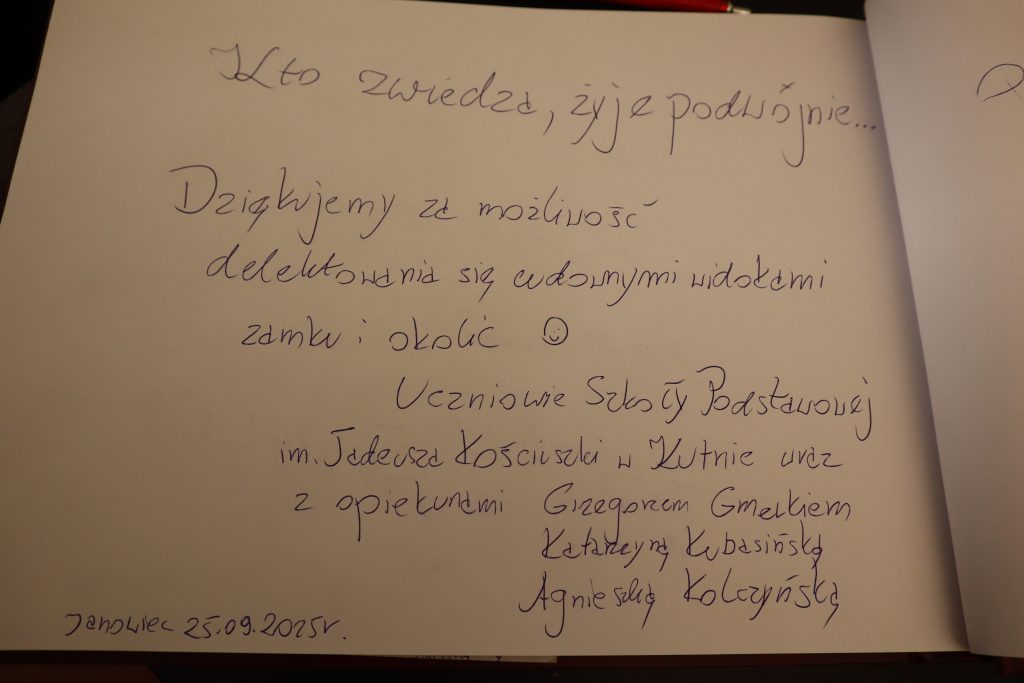 Kto zwiedza, żyje podwójnie...
Dziękujemy za możliwość
delektowania się cudownymi widokami
zamku i okolic
Uczniowie Szkoły Podstawowej
im. Tadeusza Kościuszki w Kutnie wraz
z opiekunami Grzegorzem Gmerkiem
Katarzyną Kubasińską
Agnieszką Kolczyńską
Janowiec 25.09.2025r.